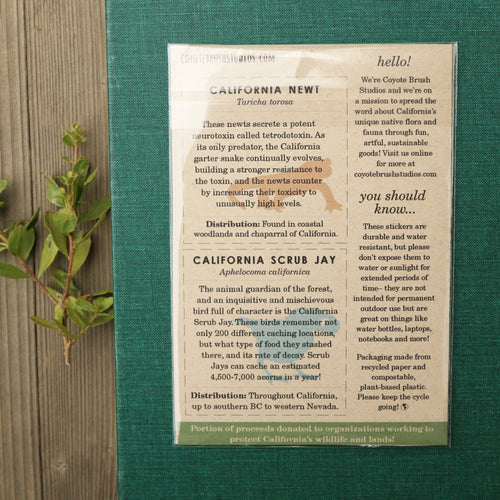 COYOTEBRUSHSTUDIOS.COM
CALIFORNIA NEWT
Taricha torosa
These newts secrete a potent
neurotoxin called tetrodotoxin. As
its only predator, the California
garter snake continually evolves,
building a stronger resistance to
the toxin, and the newts counter
by increasing their toxicity to
unusually high levels.
Distribution: Found in coastal
woodlands and chaparral of California.
CALIFORNIA SCRUB JAY
Aphelocoma californica
The animal guardian of the forest,
and an inquisitive and mischievous
bird full of character is the California
Scrub Jay. These birds remember not
only 200 different caching locations,
but what type of food they stashed
there, and its rate of decay. Scrub
Jays can cache an estimated
4,500-7,000 acorns in a year!
Distribution: Throughout California,
up to southern BC to western Nevada.
hello!
We're Coyote Brush
Studios and we're on
a mission to spread the
word about California's
unique native flora and
fauna through fun,
artful, sustainable
goods! Visit us online
for more at
coyotebrushstudios.com
you should
know...
These stickers are
durable and water
resistant, but please
don't expose them to
water or sunlight for
extended periods of
time– they are not
intended for permanent
outdoor use but are
great on things like
water bottles, laptops,
notebooks and more!
Packaging made from
recycled paper and
compostable,
plant-based plastic.
Please keep the cycle
going!
Portion of proceeds donated to organizations working to
protect California's wildlife and lands!